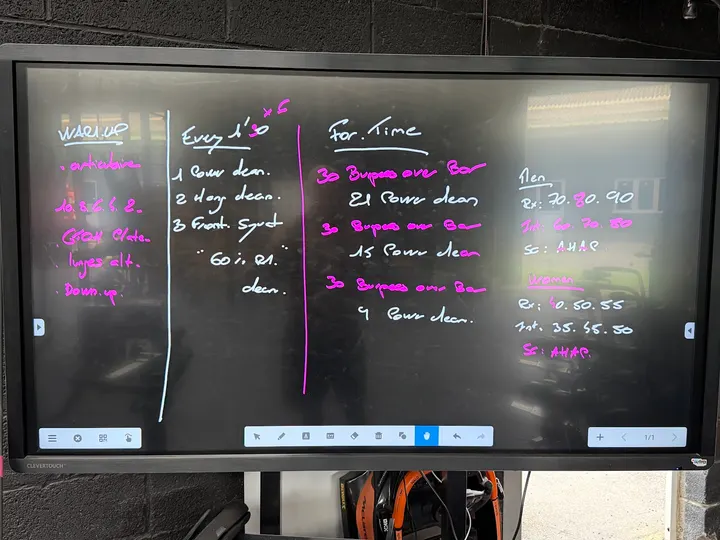 WARM.UP
. articulaire
10. 8. 6. 4. 2.
. G2OH Plate.
. lunges alt.
. Down.up.
Every 1'30 x 5
1 Power clean.
2 Hang clean.
3 Front. Squat
clean.
For. Time
30 Burpees over Bar
21 Power clean
30 Burpees over Bar
15 Power clean
30 Burpees over Bar
9 Power clean.
Men
Rx: 70. 80. 90
Int: 60. 70. 80
SC: AHAP
Women
Rx: 40. 50. 55
Int. 35. 45. 50
SC: AHAP.
1/1
CLEVERTOUCH